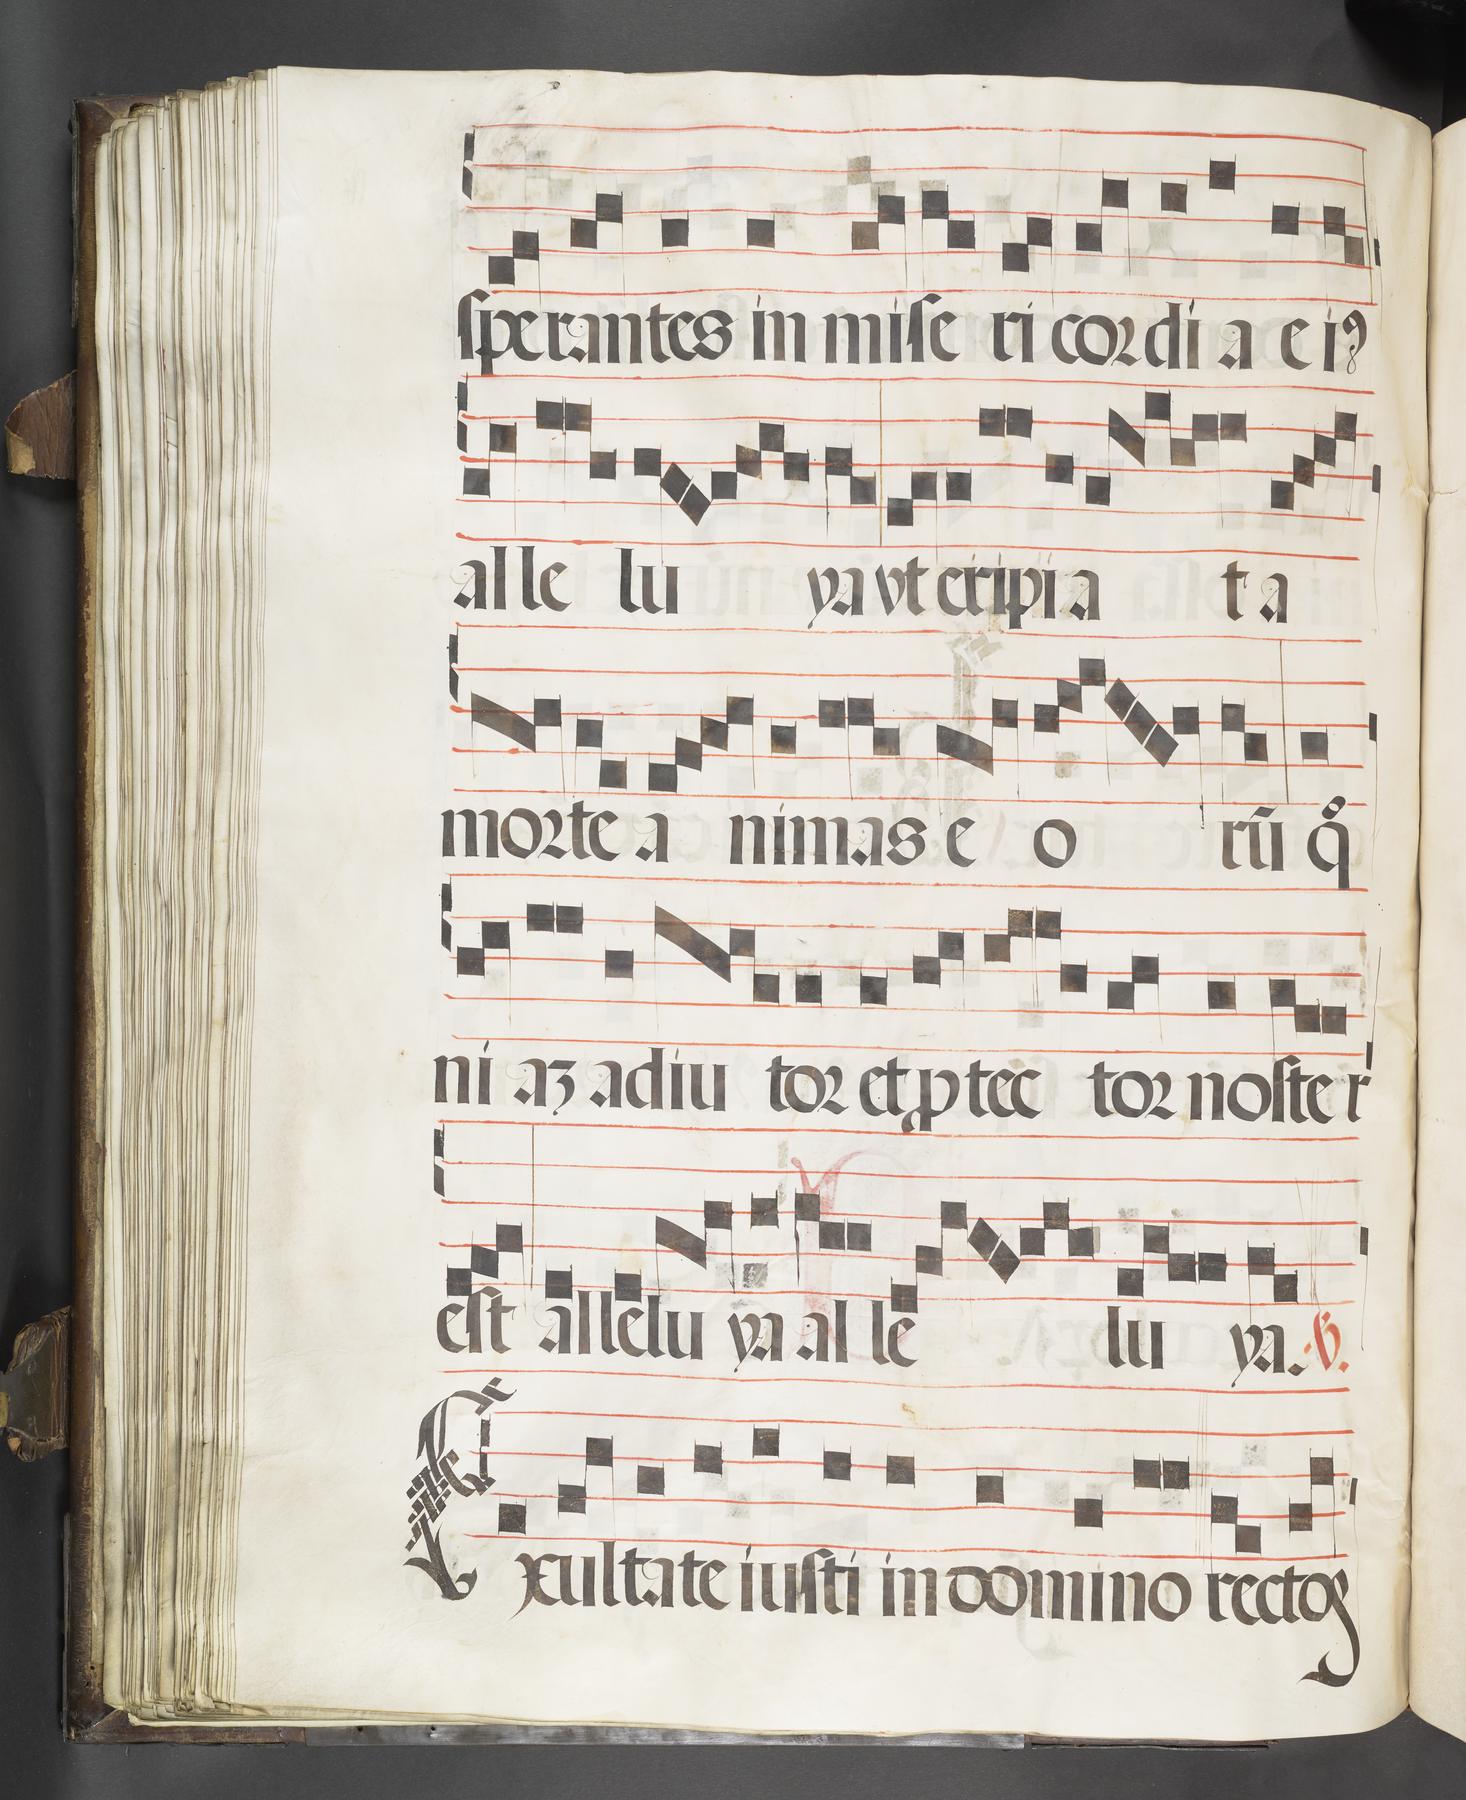 sperantes in mise ri cordi a e iꝰ
al le lu ya vt eripi a t a
morte a nimas e o rū qm̄
ni aʒ adiu tor et ꝓ tec tor noste r
est allelu ya al le lu ya. ℣.
Exultate iusti in domino rectoꝝ